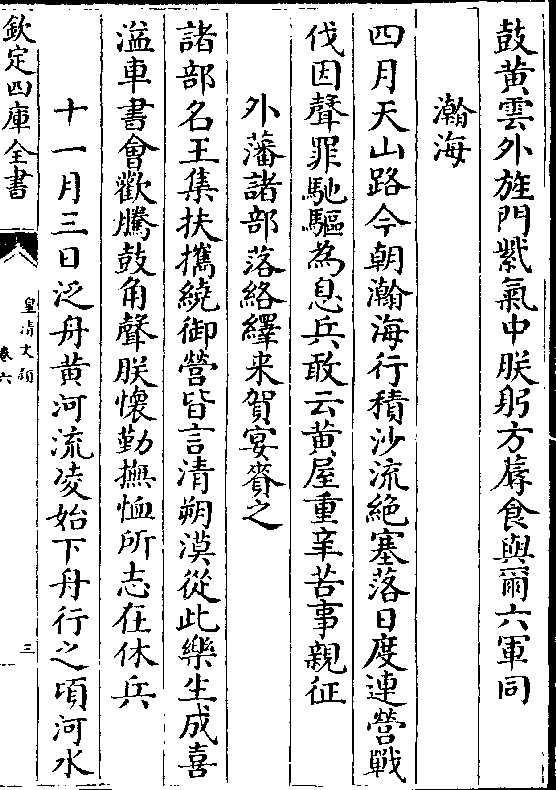 鼓黄雲外旌門紫氣中朕躬方蓐食與爾六軍同
瀚海
四月天山路今朝瀚海行積沙流絶塞落日度連營戰
伐因聲罪馳驅為息兵敢云黄屋重辛苦事親征
外藩諸部落絡繹来賀宴賚之
諸部名王集扶攜繞御營皆言清朔漠從此樂生成喜
溢車書會歡騰鼓角聲朕懷勤撫恤所志在休兵
十一月三日泛舟黄河流凌始下舟行之頃河水
欽定四庫全書
皇清文頴
卷六
三